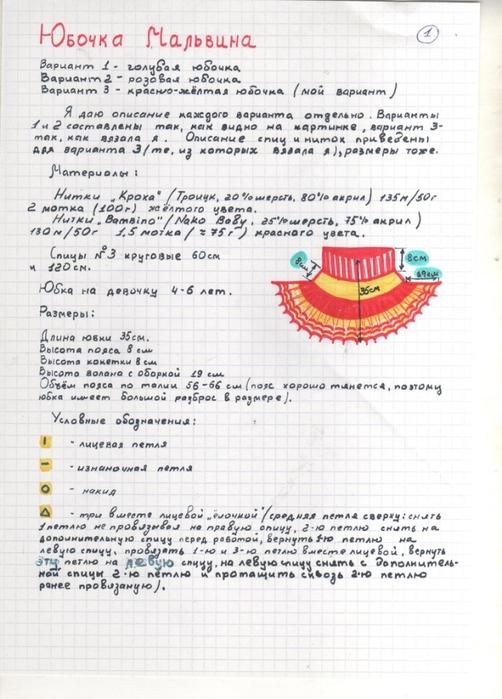 1
Юбочка Мальвина
Вариант 1 - голубая юбочка
Вариант 2 - розовая юбочка
Вариант 3 - красно-жёлтая юбочка (мой вариант)
Я даю описание каждого варианта отдельно. Варианты
1 и 2 составлены так, как видно на картинке, вариант 3-
так, как вязала я. Описание спиц и ниток приведены
для варианта 3 (те, из которых вязала я), размеры тоже.
Материалы:
Нитки „Кроха" (Троицк, 20% шерсть, 80% акрил) 135м/50г
2 мотка (100г) жёлтого цвета.
Нитки „Bambino" (Nako Baby, 25% шерсть, 75% акрил)
130м/50г 1,5 мотка (≈75г) красного цвета.
Спицы №3 круговые 60см
и 120см.
8см
8см
19см
35см
Юбка на девочку 4-6 лет.
Размеры:
Длина юбки 35см.
Высота пояса 8 см
Высота кокетки 8 см
Высота волана с оборкой 19 см
Объём пояса по талии 56-66 см (пояс хорошо тянется, поэтому
юбка имеет большой разброс в размере).
Условные обозначения:
I - лицевая петля
- - изнаночная петля
O - накид
△ - три вместе лицевой „ёлочкой" (средняя петля сверху: снять
1 петлю не провязывая на правую спицу, 2-ю петлю снять на
дополнительную спицу перед работой, вернуть 1-ю петлю на
левую спицу, провязать 1-ю и 3-ю петлю вместе лицевой, вернуть
эту петлю на левую спицу, на левую спицу снять с дополнитель-
ной спицы 2-ю петлю и протащить сквозь 2-ю петлю
ранее провязаную).